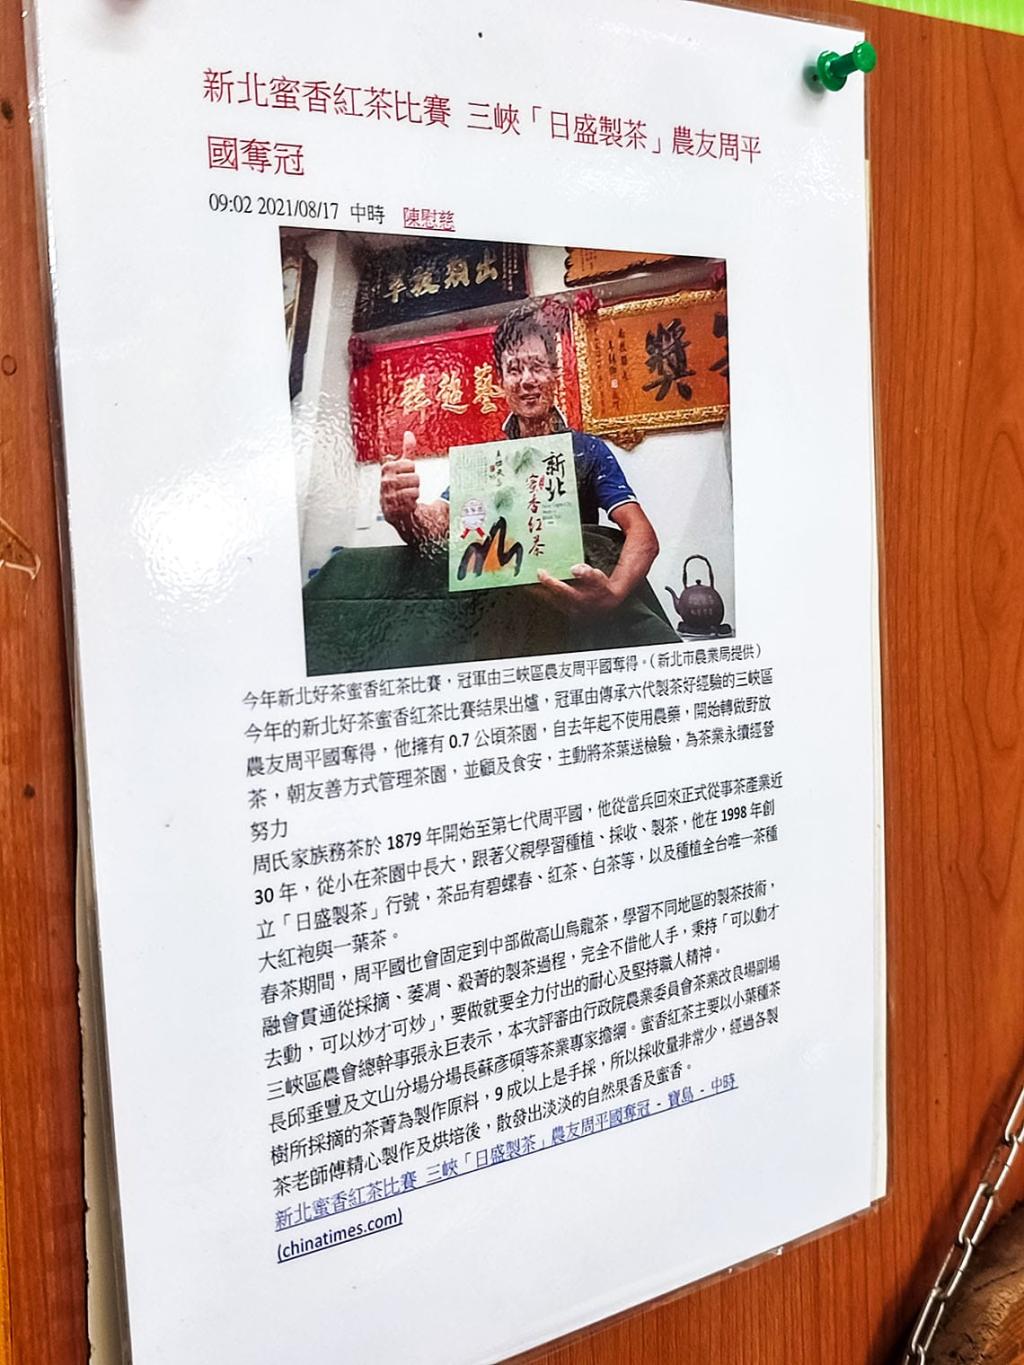 新北蜜香紅茶比賽 三峽「日盛製茶」農友周平
國奪冠
09:02 2021/08/17 中時 陳慰慈
出類拔萃
藝超群
獎
新北
蜜香紅茶
今年新北好茶蜜香紅茶比賽，冠軍由三峽區農友周平國奪得。（新北市農業局提供）
今年的新北好茶蜜香紅茶比賽結果出爐，冠軍由傳承六代製茶好經驗的三峽區
農友周平國奪得，他擁有 0.7 公頃茶園，自去年起不使用農藥，開始轉做野放
茶，朝友善方式管理茶園，並顧及食安，主動將茶葉送檢驗，為茶業永續經營
努力
周氏家族務茶於 1879 年開始至第七代周平國，他從當兵回來正式從事茶產業近
30 年，從小在茶園中長大，跟著父親學習種植、採收、製茶，他在 1998 年創
立「日盛製茶」行號，茶品有碧螺春、紅茶、白茶等，以及種植全台唯一茶種
大紅袍與一葉茶。
春茶期間，周平國也會固定到中部做高山烏龍茶，學習不同地區的製茶技術，
融會貫通從採摘、萎凋、殺菁的製茶過程，完全不借他人手，秉持「可以動才
去動，可以炒才可炒」，要做就要全力付出的耐心及堅持職人精神。
三峽區農會總幹事張永巨表示，本次評審由行政院農業委員會茶業改良場副場
長邱垂豐及文山分場分場長蘇彥碩等茶業專家擔綱。蜜香紅茶主要以小葉種茶
樹所採摘的茶菁為製作原料，9 成以上是手採，所以採收量非常少，經過各製
茶老師傅精心製作及烘培後，散發出淡淡的自然果香及蜜香。
新北蜜香紅茶比賽 三峽「日盛製茶」農友周平國奪冠 - 寶島 - 中時
(chinatimes.com)